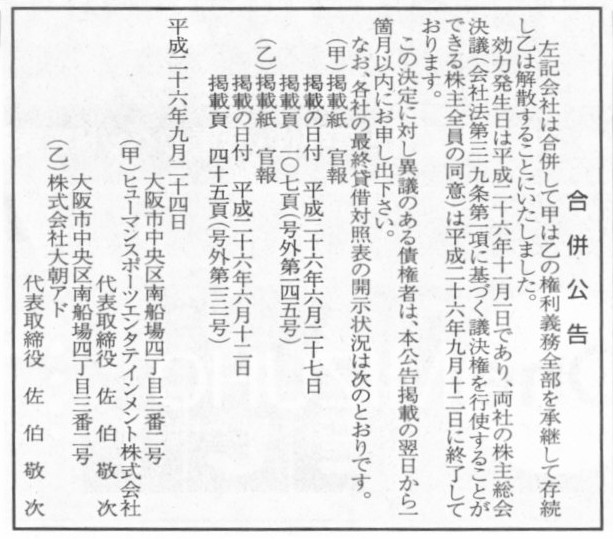 合併公告
左記会社は合併して甲は乙の権利義務全部を承継して存続
し乙は解散することにいたしました。
効力発生日は平成二十六年十一月一日であり、両社の株主総会
決議(会社法第三一九条第一項に基づく議決権を行使することが
できる株主全員の同意)は平成二十六年九月十二日に終了して
おります。
この決定に対し異議のある債権者は、本公告掲載の翌日から一
箇月以内にお申し出下さい。
なお、各社の最終貸借対照表の開示状況は次のとおりです。
(甲)掲載紙 官報
掲載の日付 平成二十六年六月二十七日
掲載頁 一〇七頁(号外第一四五号)
(乙)掲載紙 官報
掲載の日付 平成二十六年六月十二日
掲載頁 四十五頁(号外第一三二号)
平成二十六年九月二十四日
大阪市中央区南船場四丁目三番二号
(甲)ヒューマンスポーツエンタテインメント株式会社
代表取締役 佐伯敬次
大阪市中央区南船場四丁目三番二号
(乙)株式会社大朝アド
代表取締役 佐伯敬次